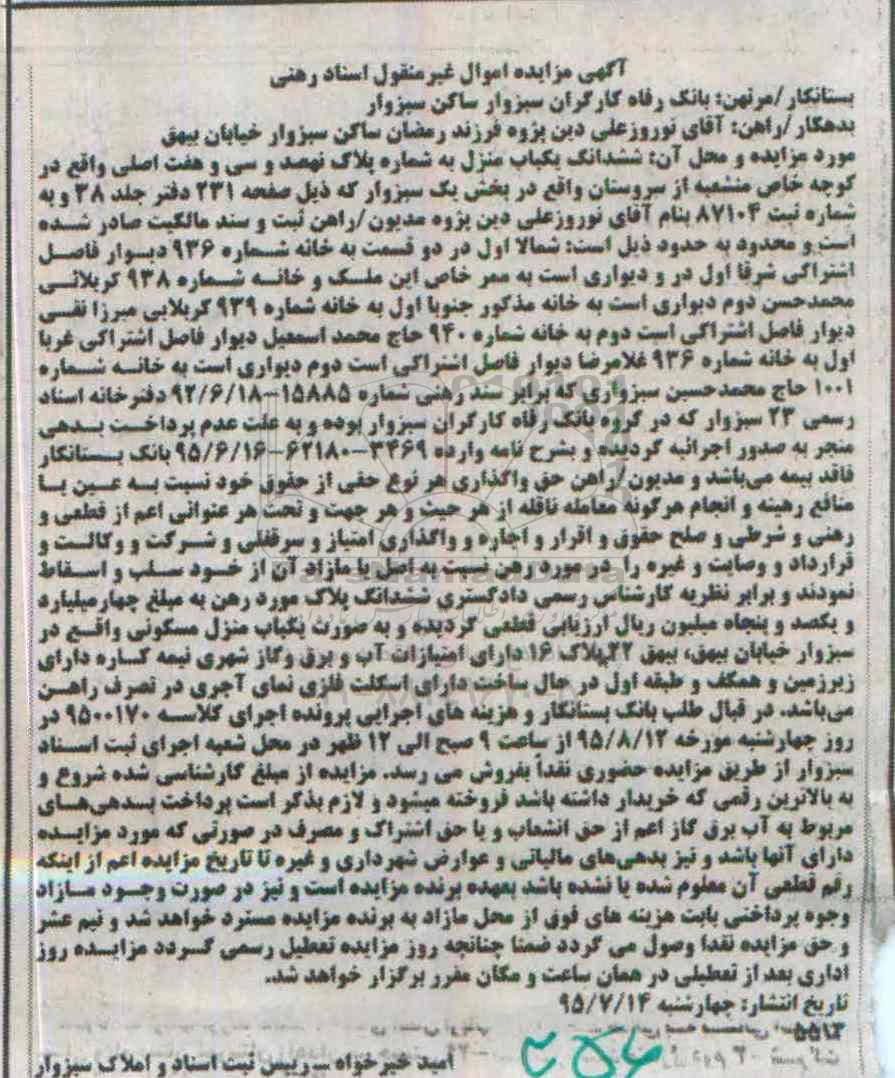 آگهی مزایده اموال غیرمنقول اسناد رهنی
بستانکار/مرتهن: بانک رفاه کارگران سبزوار ساکن سبزوار
بدهکار/راهن: آقای نوروزعلی دین پژوه فرزند رمضان ساکن سبزوار خیابان بیهق
مورد مزایده و محل آن: ششدانگ یکباب منزل به شماره پلاک نهصد و سی و هفت اصلی واقع در
کوچه خاص منشعبه از سروستان واقع در بخش یک سبزوار که ذیل صفحه ۲۳۱ دفتر جلد ۳۸ و به
شماره ثبت ۸۷۱۰۴ بنام آقای نوروزعلی دین پژوه مدیون/راهن ثبت و سند مالکیت صادر شده
است و محدود به حدود ذیل است: شمالا اول در دو قسمت به خانه شماره ۹۳۶ دیوار فاصل
اشتراکی شرقا اول در و دیواری است به ممر خاص این ملک و خانه شماره ۹۳۸ کربلائی
محمدحسن دوم دیواری است به خانه مذکور جنوبا اول به خانه شماره ۹۳۹ کربلایی میرزا تقی
دیوار فاصل اشتراکی است دوم به خانه شماره ۹۴۰ حاج محمد اسمعیل دیوار فاصل اشتراکی غربا
اول به خانه شماره ۹۳۶ غلامرضا دیوار فاصل اشتراکی است دوم دیواری است به خانه شماره
۱۰۰۱ حاج محمدحسین سبزواری که برابر سند رهنی شماره ۱۵۸۸۵-۹۲/۶/۱۸ دفترخانه اسناد
رسمی ۲۳ سبزوار که در گروه بانک رفاه کارگران سبزوار بوده و به علت عدم پرداخت بدهی
منجر به صدور اجرائیه گردیده و بشرح نامه وارده ۳۴۶۹-۶۲۱۸۰-۹۵/۶/۱۶ بانک بستانکار
فاقد بیمه می‌باشد و مدیون/راهن حق واگذاری هر نوع حقی از حقوق خود نسبت به عین یا
منافع رهینه و انجام هرگونه معامله ناقله از هر حیث و هر جهت و تحت هر عنوانی اعم از قطعی و
رهنی و شرطی و صلح حقوق و اقرار و اجاره و واگذاری امتیاز و سرقفلی و شرکت و وکالت و
قرارداد و وصایت و غیره را در مورد رهن نسبت به اصل یا مازاد آن از خود سلب و اسقاط
نمودند و برابر نظریه کارشناس رسمی دادگستری ششدانگ پلاک مورد رهن به مبلغ چهارمیلیارد
و یکصد و پنجاه میلیون ریال ارزیابی قطعی گردیده و به صورت یکباب منزل مسکونی واقع در
سبزوار خیابان بیهق، بیهق ۲۲ پلاک ۱۶ دارای امتیازات آب و برق وگاز شهری نیمه کاره دارای
زیرزمین و همکف و طبقه اول در حال ساخت دارای اسکلت فلزی نمای آجری در تصرف راهن
می‌باشد. در قبال طلب بانک بستانکار و هزینه های اجرایی پرونده اجرای کلاسه ۹۵۰۰۱۷۰ در
روز چهارشنبه مورخه ۹۵/۸/۱۲ از ساعت ۹ صبح الی ۱۲ ظهر در محل شعبه اجرای ثبت اسناد
سبزوار از طریق مزایده حضوری نقداً بفروش می رسد. مزایده از مبلغ کارشناسی شده شروع و
به بالاترین رقمی که خریدار داشته باشد فروخته میشود و لازم بذکر است پرداخت بدهی‌های
مربوط به آب برق گاز اعم از حق انشعاب و یا حق اشتراک و مصرف در صورتی که مورد مزایده
دارای آنها باشد و نیز بدهی‌های مالیاتی و عوارض شهرداری و غیره تا تاریخ مزایده اعم از اینکه
رقم قطعی آن معلوم شده یا نشده باشد بعهده برنده مزایده است و نیز در صورت وجود مازاد
وجوه پرداختی بابت هزینه های فوق از محل مازاد به برنده مزایده مسترد خواهد شد و نیم عشر
و حق مزایده نقدا وصول می گردد ضمنا چنانچه روز مزایده تعطیل رسمی گردد مزایده روز
اداری بعد از تعطیلی در همان ساعت و مکان مقرر برگزار خواهد شد.
تاریخ انتشار: چهارشنبه ۹۵/۷/۱۴
امید خیرخواه – رییس ثبت اسناد و املاک سبزوار